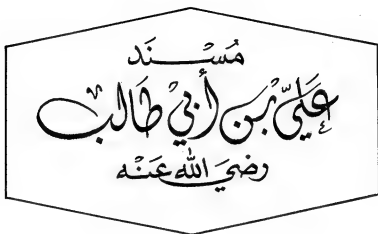 مُسْنَد
عَلِيّ بْن أَبِي طَالِب
رَضِيَ الله عَنْه